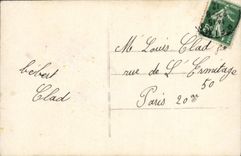 bébert
Clad
M. Louis Clad
rue de L'Ermitage
50
Paris 20